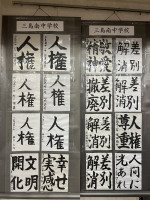 三島南中学校
人権
人権
人権
人権
人権
人権
幸せ
実感
文明
開化
三島南中学校
差別
解消
敬愛
精神
差別
解消
差別
撤廃
人権
尊重
差別
解消
人間に
光あれ
差別
解消